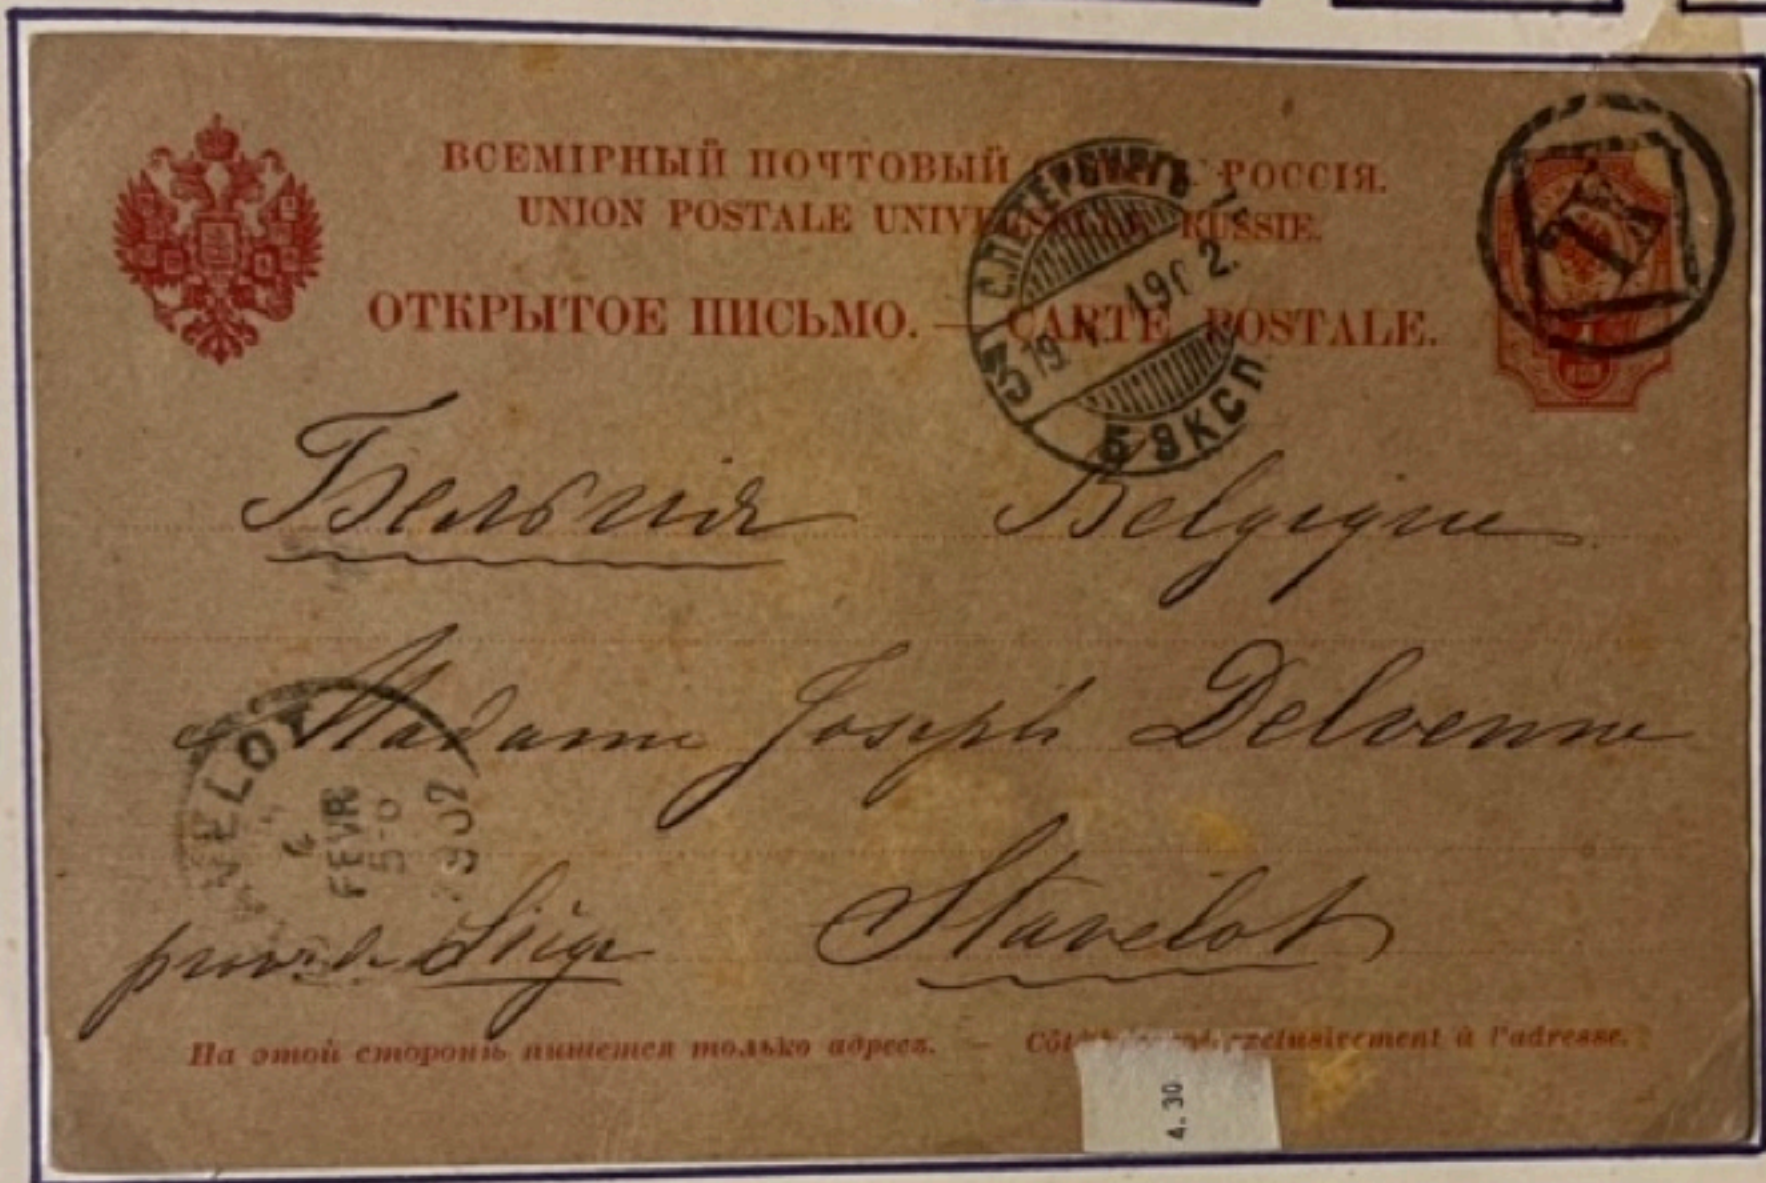 ВСЕМІРНЫЙ ПОЧТОВЫЙ РОССІЯ.
UNION POSTALE UNIVERSELLE. RUSSIE.
ОТКРЫТОЕ ПИСЬМО. — CARTE POSTALE.
С.ПЕТЕРБУРГЪ
1902.
5 ЭКСП.
3
Бельгія Belgique
Madame Joseph Delvenne
VELOT
4
FEVR
1902
prov. de Liège Stavelot
На этой сторонѣ пишется только адресъ. — Côté réservé exclusivement à l'adresse.
4.30